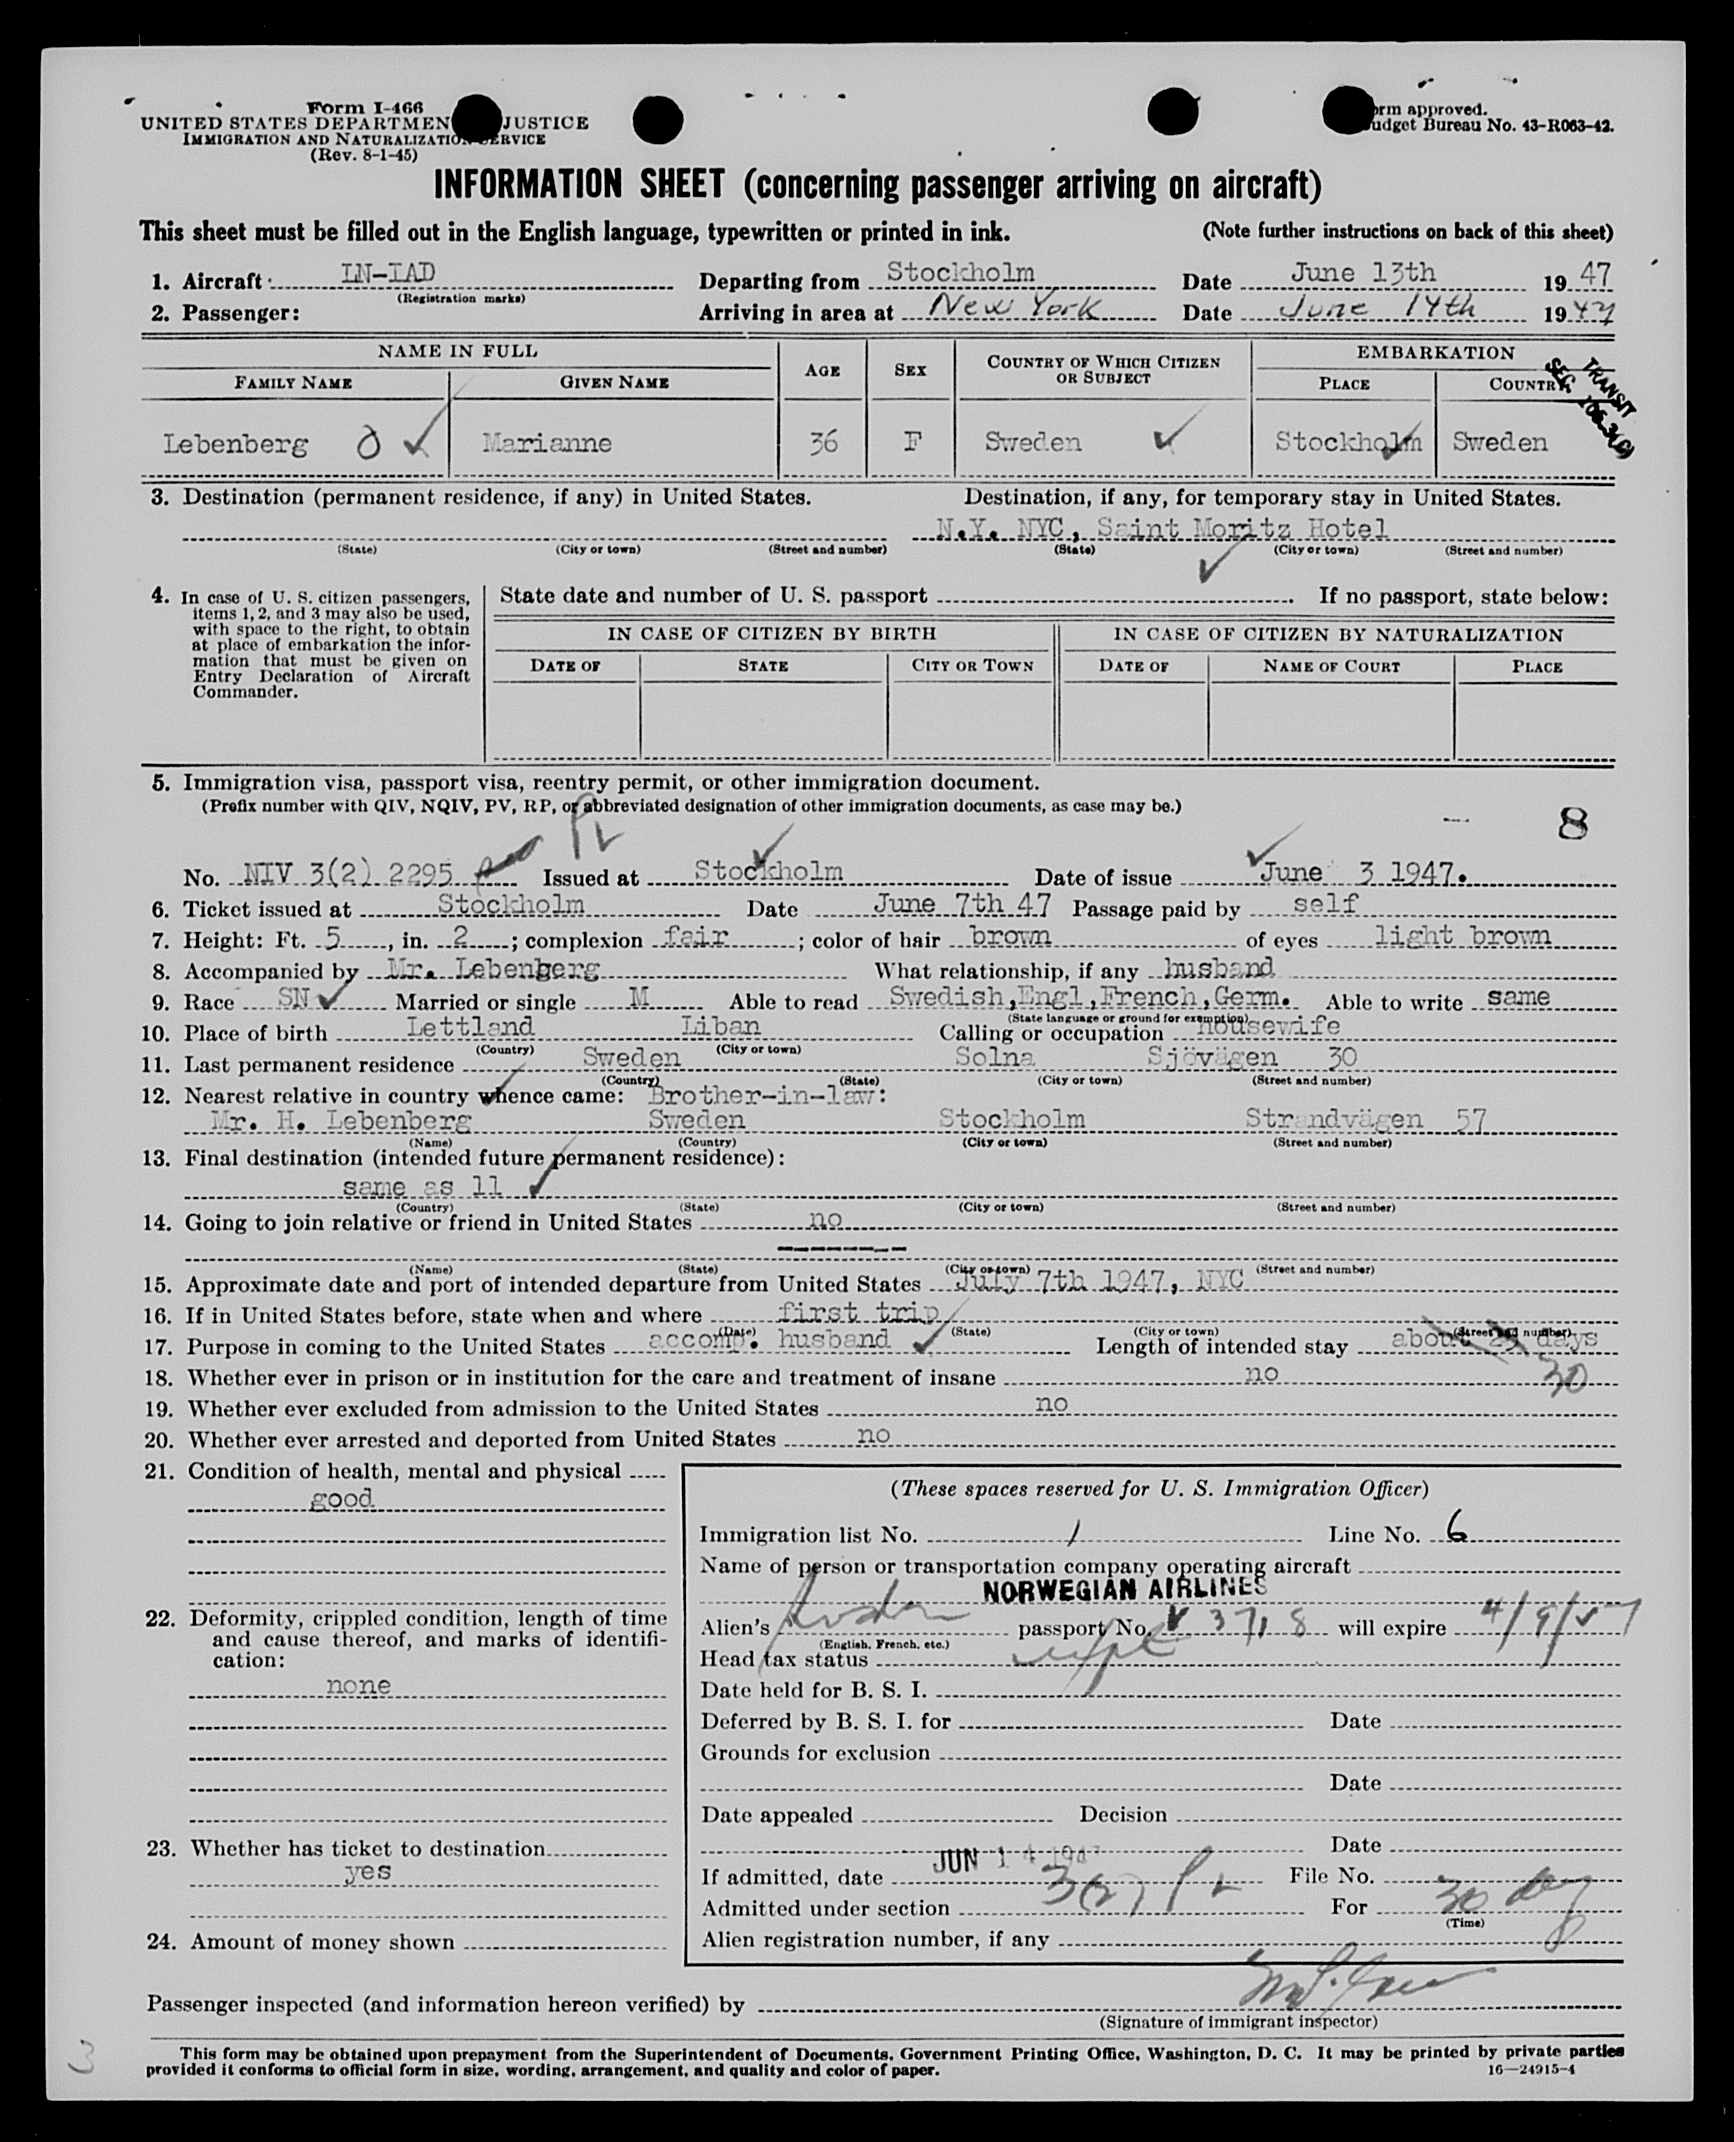 Form I-466
UNITED STATES DEPARTMEN JUSTICE
IMMIGRATION AND NATURALIZATION SERVICE
(Rev. 8-1-45)
orm approved.
udget Bureau No. 43-R063-42.
INFORMATION SHEET (concerning passenger arriving on aircraft)
This sheet must be filled out in the English language, typewritten or printed in ink. (Note further instructions on back of this sheet)
1. Aircraft LN-IAD Departing from Stockholm Date June 13th 19 47
(Registration marks)
2. Passenger: Arriving in area at New York Date June 14th 19 47
NAME IN FULL AGE SEX COUNTRY OF WHICH CITIZEN OR SUBJECT EMBARKATION
FAMILY NAME GIVEN NAME PLACE COUNTRY
TRANSIT
SEC. 106.3(C)
Lebenberg Marianne 36 F Sweden Stockholm Sweden
3. Destination (permanent residence, if any) in United States. Destination, if any, for temporary stay in United States.
N.Y. NYC, Saint Moritz Hotel
(State) (City or town) (Street and number) (State) (City or town) (Street and number)
4. In case of U. S. citizen passengers, items 1, 2, and 3 may also be used, with space to the right, to obtain at place of embarkation the information that must be given on Entry Declaration of Aircraft Commander.
State date and number of U. S. passport . If no passport, state below:
IN CASE OF CITIZEN BY BIRTH IN CASE OF CITIZEN BY NATURALIZATION
DATE OF STATE CITY OR TOWN DATE OF NAME OF COURT PLACE
5. Immigration visa, passport visa, reentry permit, or other immigration document.
(Prefix number with QIV, NQIV, PV, RP, or abbreviated designation of other immigration documents, as case may be.)
8
No. NIV 3(2) 2295 Issued at Stockholm Date of issue June 3 1947.
6. Ticket issued at Stockholm Date June 7th 47 Passage paid by self
7. Height: Ft. 5, in. 2; complexion fair; color of hair brown of eyes light brown
8. Accompanied by Mr. Lebenberg What relationship, if any husband
9. Race SN Married or single M Able to read Swedish,Engl,French,Germ. Able to write same
(State language or ground for exemption)
10. Place of birth Lettland Liban Calling or occupation housewife
(Country) (City or town)
11. Last permanent residence Sweden Solna Sjövägen 30
(Country) (State) (City or town) (Street and number)
12. Nearest relative in country whence came: Brother-in-law:
Mr. H. Lebenberg Sweden Stockholm Strandvägen 57
(Name) (Country) (City or town) (Street and number)
13. Final destination (intended future permanent residence):
same as 11
(Country) (State) (City or town) (Street and number)
14. Going to join relative or friend in United States no
(Name) (State) (City or town) (Street and number)
15. Approximate date and port of intended departure from United States July 7th 1947, NYC
16. If in United States before, state when and where first trip
(Date) (State) (City or town) (Street and number)
17. Purpose in coming to the United States accomp. husband Length of intended stay about days
30
18. Whether ever in prison or in institution for the care and treatment of insane no
19. Whether ever excluded from admission to the United States no
20. Whether ever arrested and deported from United States no
21. Condition of health, mental and physical
good
22. Deformity, crippled condition, length of time and cause thereof, and marks of identification:
none
23. Whether has ticket to destination
yes
24. Amount of money shown
(These spaces reserved for U. S. Immigration Officer)
Immigration list No. 1 Line No. 6
Name of person or transportation company operating aircraft
NORWEGIAN AIRLINES
Alien's passport No. 3718 will expire 4/9/57
(English, French, etc.)
Head tax status
Date held for B. S. I.
Deferred by B. S. I. for Date
Grounds for exclusion
Date
Date appealed Decision
Date
If admitted, date JUN 14 1947 File No.
Admitted under section 3(2) For 30 day
(Time)
Alien registration number, if any
Passenger inspected (and information hereon verified) by
(Signature of immigrant inspector)
This form may be obtained upon prepayment from the Superintendent of Documents, Government Printing Office, Washington, D. C. It may be printed by private parties
provided it conforms to official form in size, wording, arrangement, and quality and color of paper. 16—24915-4
3